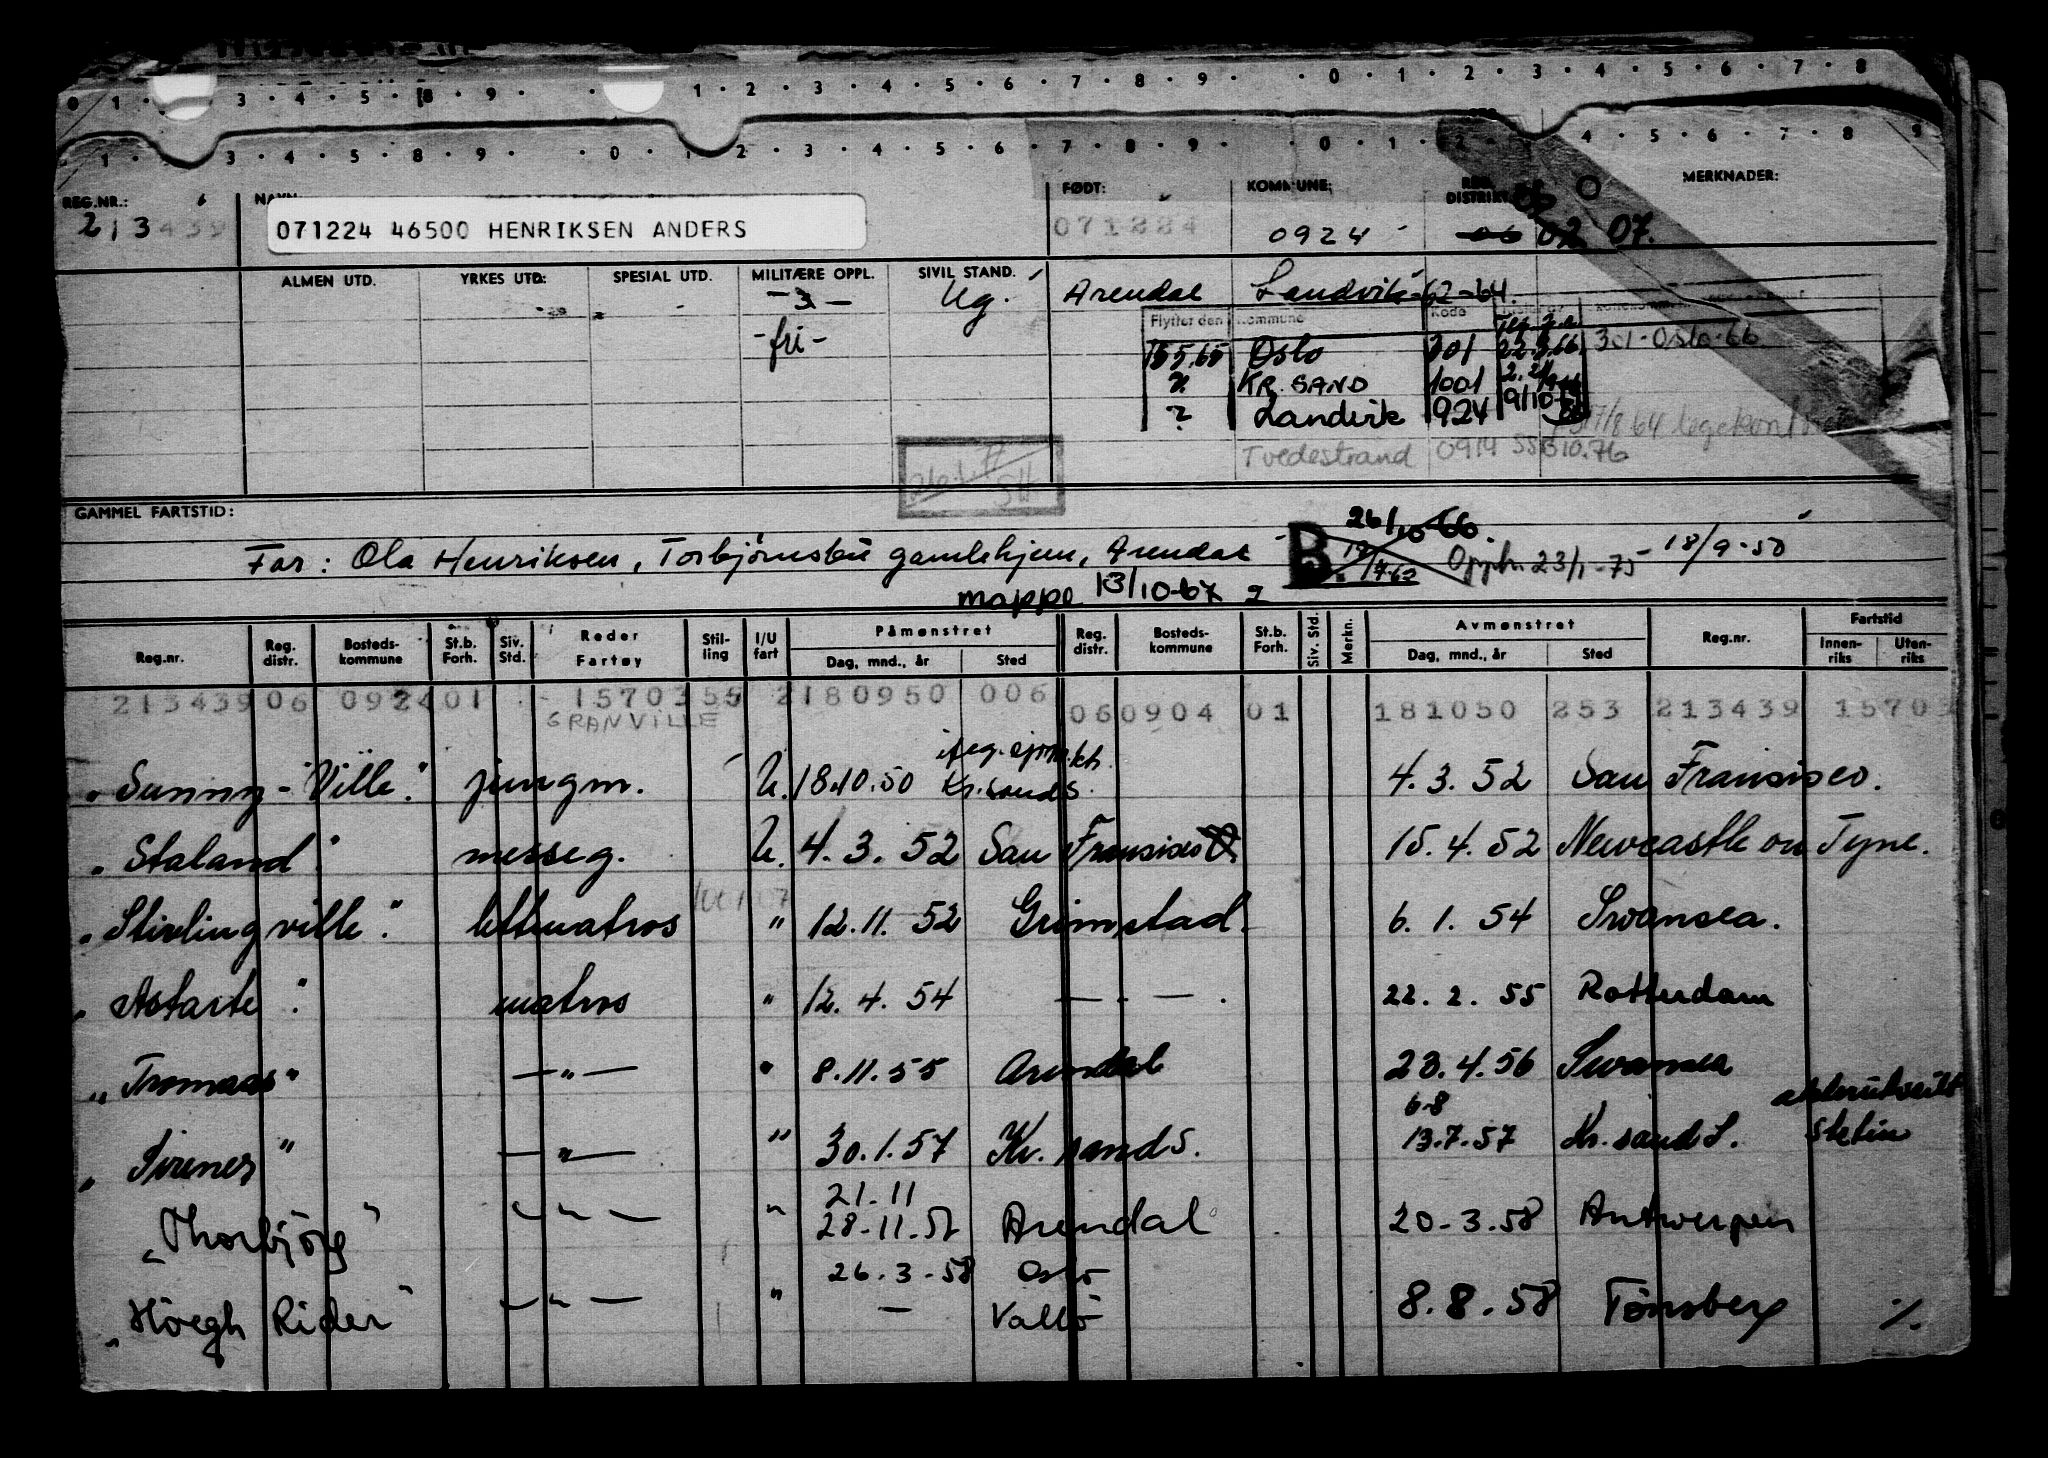 0 1 · 3 · 4 · 5 · 8 · 9 · · 1 · 2 · 3 · 4 · 5 · 6 · 7 · 8 · 9 · · 0 · 1 · 2 · 3 · 4 · 5 · 6 · 7 · 8
1 · 3 · 4 · 5 · 8 · 9 · · 0 · 1 2 · 3 · 4 · 5 · 6 · 7 · 8 · 9 · · 0 · 1 · 2 · 4 · 5 · 6 · 7 · 8 9
REG.NR.: NAVN FØDT: KOMMUNE: REG. DISTRIKT MERKNADER:
213439 071224 46500 HENRIKSEN ANDERS 071224 0924 06 02 07.
ALMEN UTD. YRKES UTD: SPESIAL UTD. MILITÆRE OPPL. SIVIL STAND.
-3- Ug. Arendal Landvik-62-64.
Flyttet den Kommune Kode
-fri- 15.5.65 Oslo 301 22.3.66. 301-Oslo-66
? KR. SAND 1001
? Landvik 924 9/10-
17/8 64 legekont
Tvedestrand 0914 SSB10.76
SH
GAMMEL FARTSTID:
Far: Ola Henriksen, Torbjørnsbu gamlehjem, Arendal B 26/10-66. Opph. 23/1-75 18/9-50
mappe 13/10-67
Reg.nr. Reg. distr. Bosteds-kommune St.b. Forh. Siv. Std. Reder Fartøy Stil-ling I/U fart Påmønstret Dag, mnd., år Sted Reg. distr. Bosteds-kommune St.b. Forh. Siv. Std. Merkn. Avmønstret Dag, mnd., år Sted Reg.nr. Fartstid Innen-riks Uten-riks
213439 06 0924 01 1570355 2180950 006
GRANVILLE 060904 01 181050 253 213439 15703
"Sunny-Ville". jungm. U. 18.10.50 Kr.sand S. 4.3.52 San Fransisco.
"Staland". messeg. U. 4.3.52 San Fransisco 15.4.52 Newcastle on Tyne.
"Stirlingville". lettmatros " 12.11.52 Grimstad. 6.1.54 Swansea.
"Astarte". matros " 12.4.54 — " — . 22.2.55 Rotterdam
"Tromaas" — " — " 8.11.55 Arendal 23.4.56 Swansea
6-8
"Sirenes" — " — " 30.1.57 Kr. sand S. 13.7.57 Kr. sand S. Stetin
21.11
"Thorbjörg" — " — " 28-11.57 Arendal 20-3.58 Antwerpen
26.3-58 Oslo
"Höegh Rider" — " — " — Vallö 8.8.58 Tönsberg %